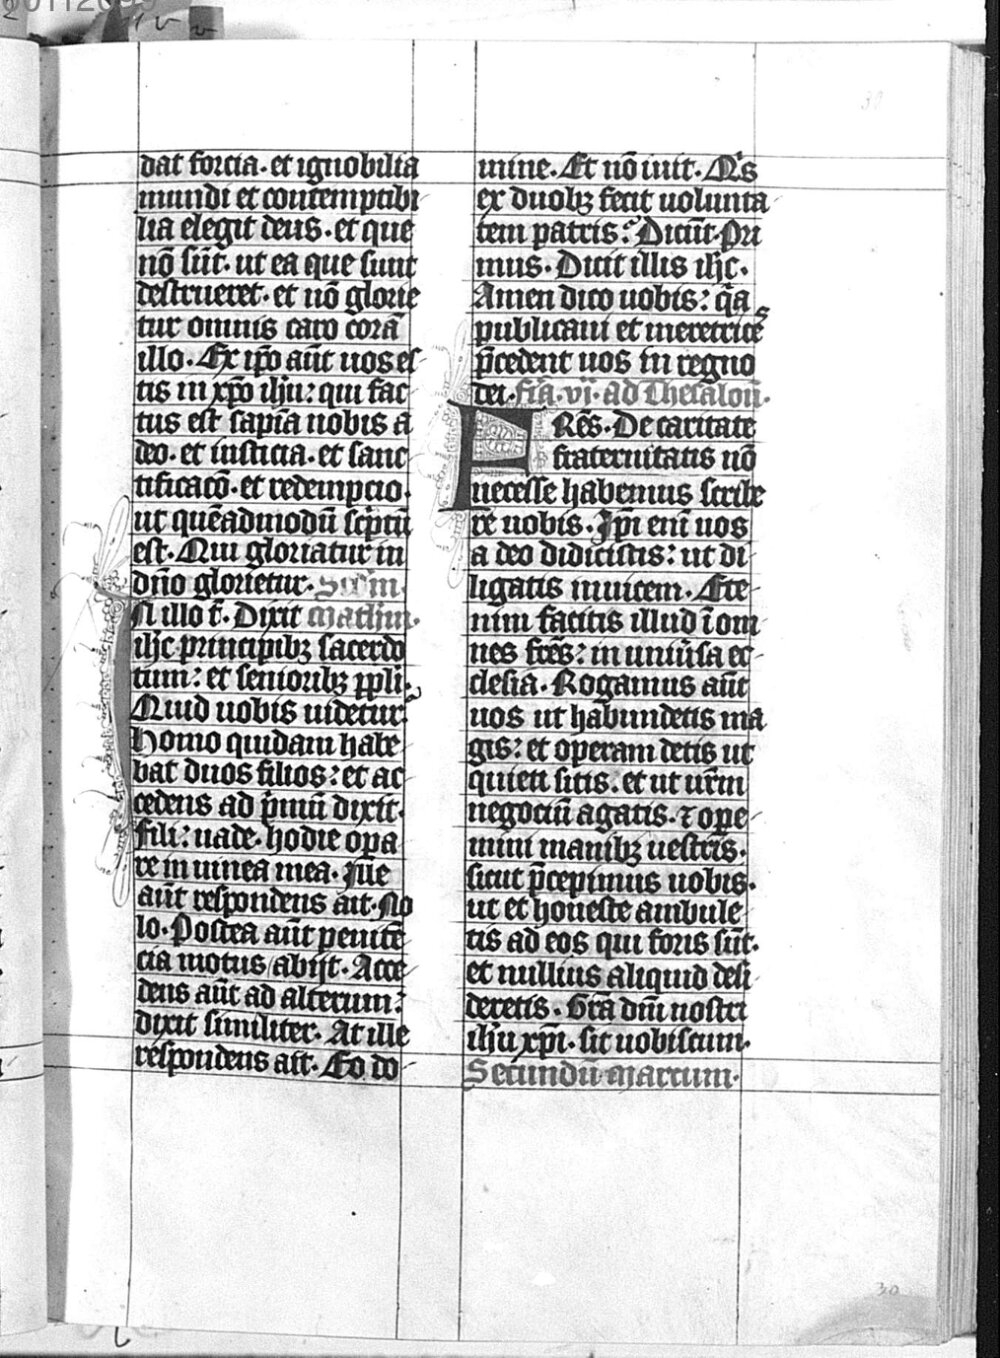 dat forcia · et ignobilia
mundi et contemptibi
lia elegit deus · et que
nō sūt · ut ea que sunt
destrueret · et nō glorie
tur omnis caro corā
illo · Ex ip̄o aūt uos es
tis in xp̄o ih̄u : qui fac
tus est sapīa nobis a
deo · et iusticia · et sanc
tificacō · et redempcio ·
ut quēadmodū sc̄ptū
est · Qui gloriatur in
dn̄o glorietur · Scd̄m
IN illo t̄ · Dixit matheum ·
ih̄c principibꝫ sacerdo
tum : et senioribꝫ pp̄li ·
Quid uobis uidetur
homo quidam habe
bat duos filios : et ac
cedens ad p̄mū dixit ·
fili : uade · hodie opa
re in uinea mea · Ille
aūt respondens ait · No
lo · Postea aūt penitē
cia motus abijt · Acce
dens aūt ad alterum :
dixit similiter · At ille
respondens ait · Eo do
mine · Et nō iuit · Qͥs
ex duobꝫ fecit uolunta
tem patris : Dicūt · pri
mus · Dicit illis ih̄c ·
Amen dico uobis : qͥa
publicani et meretrices
p̄cedent uos in regno
dei · fr̄ia · vj · ad Thesaloñ ·
FRēs · De caritate
fraternitatis nō
necesse habemus scribe
re uobis · Ip̄i eni uos
a deo didicistis : ut di
ligatis inuicem · Ete
nim facitis illud ī om
nes frēs : in uniūsa ec
clesia · Rogamus aūt
uos ut habundetis ma
gis : et operam detis ut
quieti sitis · et ut ur̄m
negociū agatis · ⁊ ope
mini manibꝫ uestris ·
sicut p̄cepimus uobis ·
ut et honeste ambule
tis ad eos qui foris sūt ·
et nullius aliquid desi
deretis · Grā dn̄i nostri
ih̄u xp̄i · sit uobiscum ·
Secundū marcum ·
30